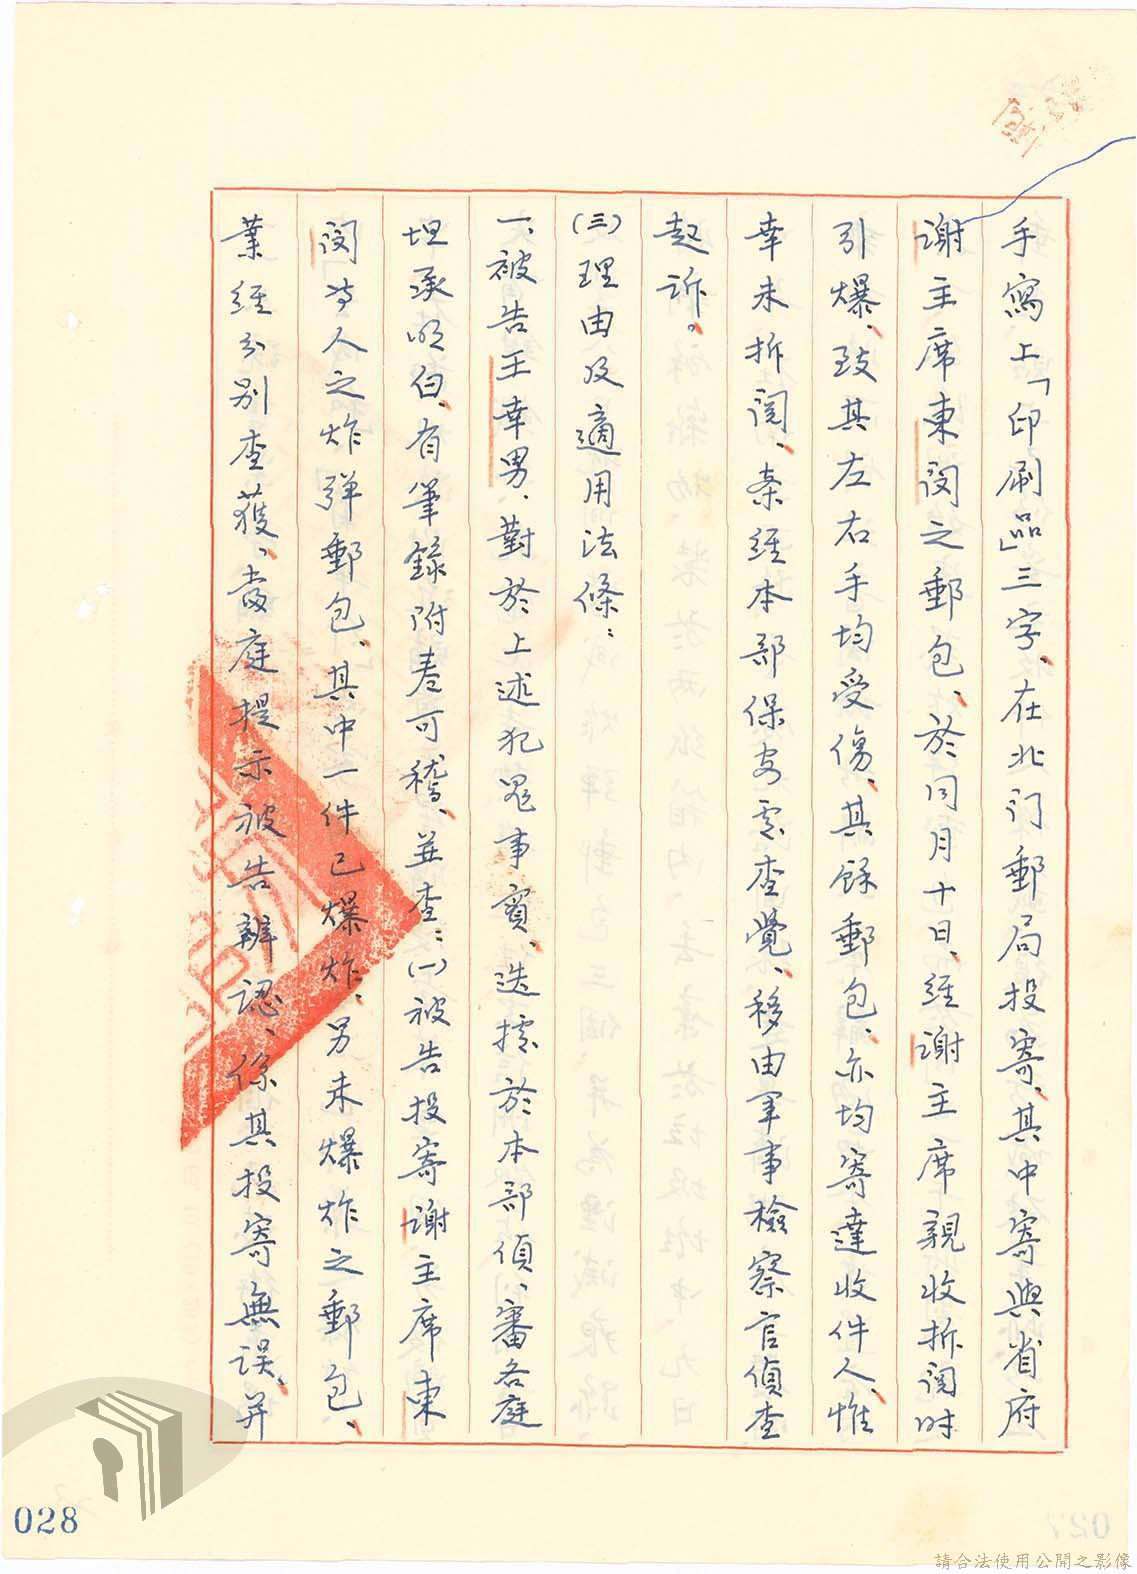 手寫上「印刷品」三字、在北门郵局投寄、其中寄與省府
謝主席東閔之郵包、於同月十日、經謝主席親收拆閱时
引爆、致其左右手均受傷、其餘郵包、亦均寄達收件人、惟
幸未拆閱、案經本部保安處查覺、移由軍事檢察官偵查
起訴。
(三)理由及適用法條：
一、被告王幸男、對於上述犯罪事實、迭據於本部偵、審各庭
坦承明白、有筆錄附卷可稽、並查：(一)被告投寄謝主席東
閔等人之炸彈郵包、其中一件已爆炸、另未爆炸之郵包、
業經分別查獲、當庭提示被告辨認、係其投寄無误、并
028
請合法使用公開之影像